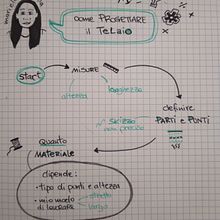 COME PROGETTARE
il TELAIO
start
MISURE
altezza
larghezza
definire
PARTI e PUNTI
Schizzo
non preciso
Quanto
MATERIALE
dipende:
• tipo di punti e altezza
• mio modo
di lavorare
stretto
largo